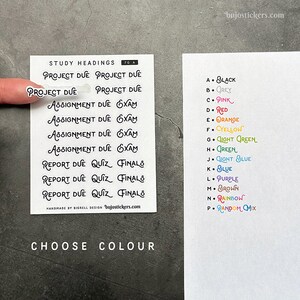 bujostickers.com
STUDY HEADINGS
PROJECT DUE PROJECT DUE
PROJECT DUE PROJECT DUE
ASSIGNMENT DUE EXAM
ASSIGNMENT DUE EXAM
ASSIGNMENT DUE EXAM
ASSIGNMENT DUE EXAM
REPORT DUE QUIZ FINALS
REPORT DUE QUIZ FINALS
HANDMADE BY SIGRELL DESIGN bujostickers.com
A • BLACK
B • GREY
C • PINK
D • RED
E • ORANGE
F • YELLOW
G • LIGHT GREEN
H • GREEN
J • LIGHT BLUE
K • BLUE
L • PURPLE
M • BROWN
N • RAINBOW
P • RANDOM MIX
CHOOSE COLOUR